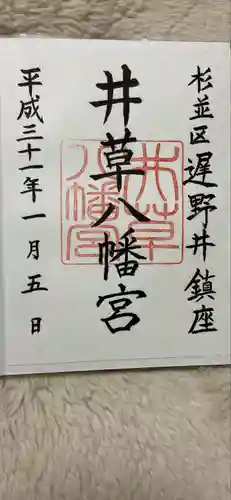 杉並区遅野井鎮座
井草八幡宮
井草
八幡宮
平成三十一年一月五日